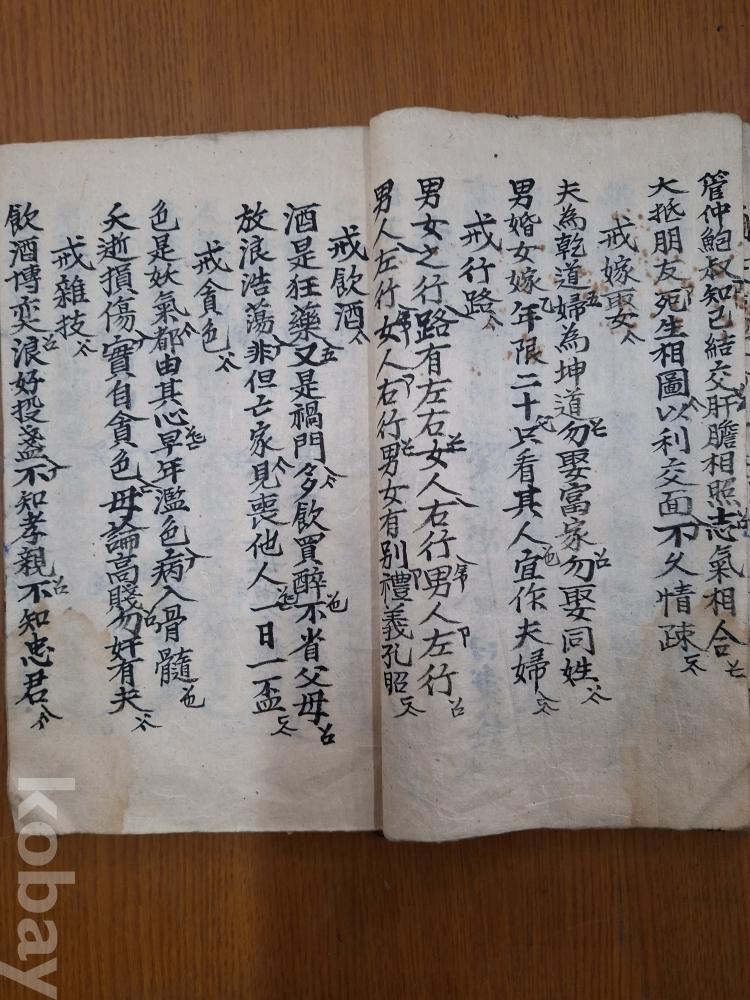 管仲鮑叔知己結交肝膽相照志氣相合
大抵朋友死生相圖以利交面不久情疎
戒嫁娶
夫為乾道婦為坤道勿娶富家勿娶同姓
男婚女嫁年限二十只看其人宜作夫婦
戒行路
男女之行路有左右女人右行男人左行
男人左行女人右行男女有別禮義孔昭
戒飲酒
酒是狂藥又是禍門多飲買醉不省父母
放浪浩蕩非但亡家見喪他人一日一盃
戒貪色
色是妖氣都由其心早年濫色病入骨髓
夭逝損傷實自貪色毋論高賤勿奸有夫
戒雜技
飲酒博奕浪好投盞不知孝親不知忠君
kobay